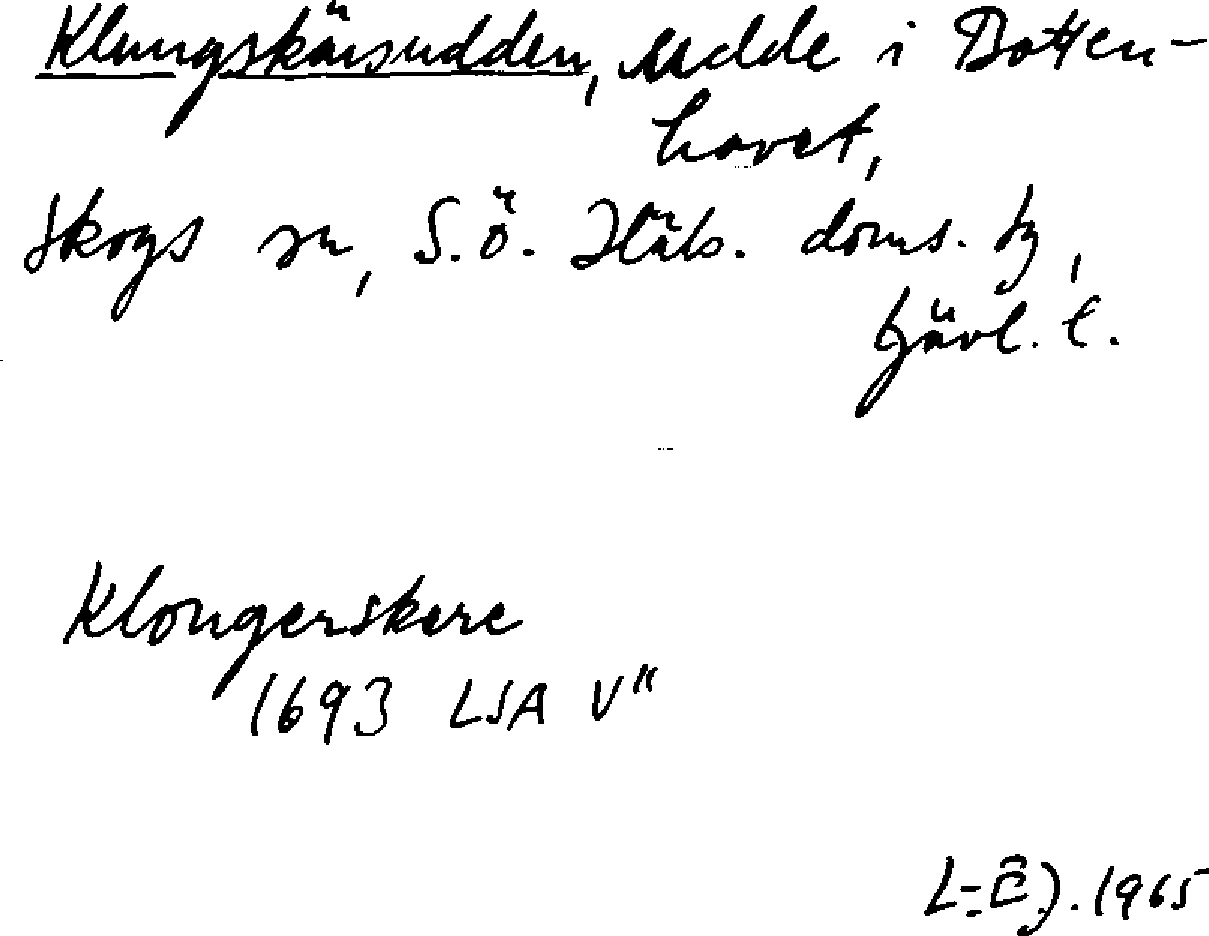 Klungskärsudden, udde i Botten-
havet,
Skogs sn, S.Ö. Häls. doms. tg,
Gävl. l.
Klongerskere
1693 LSA V"
L-E J. 1965